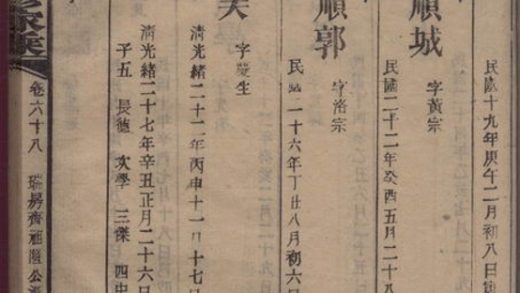 民國十九年庚午二月初八日
順城
字黃宗
民國二十二年癸酉五月二十八
順郭
字洛宗
民國二十六年丁丑八月初六
字慶生
清光緒二十二年丙申十一月十七
清光緒二十七年辛丑正月二十六日
子五 長德 次學 三傑 四
卷六十八 瑞房齊祖隆公